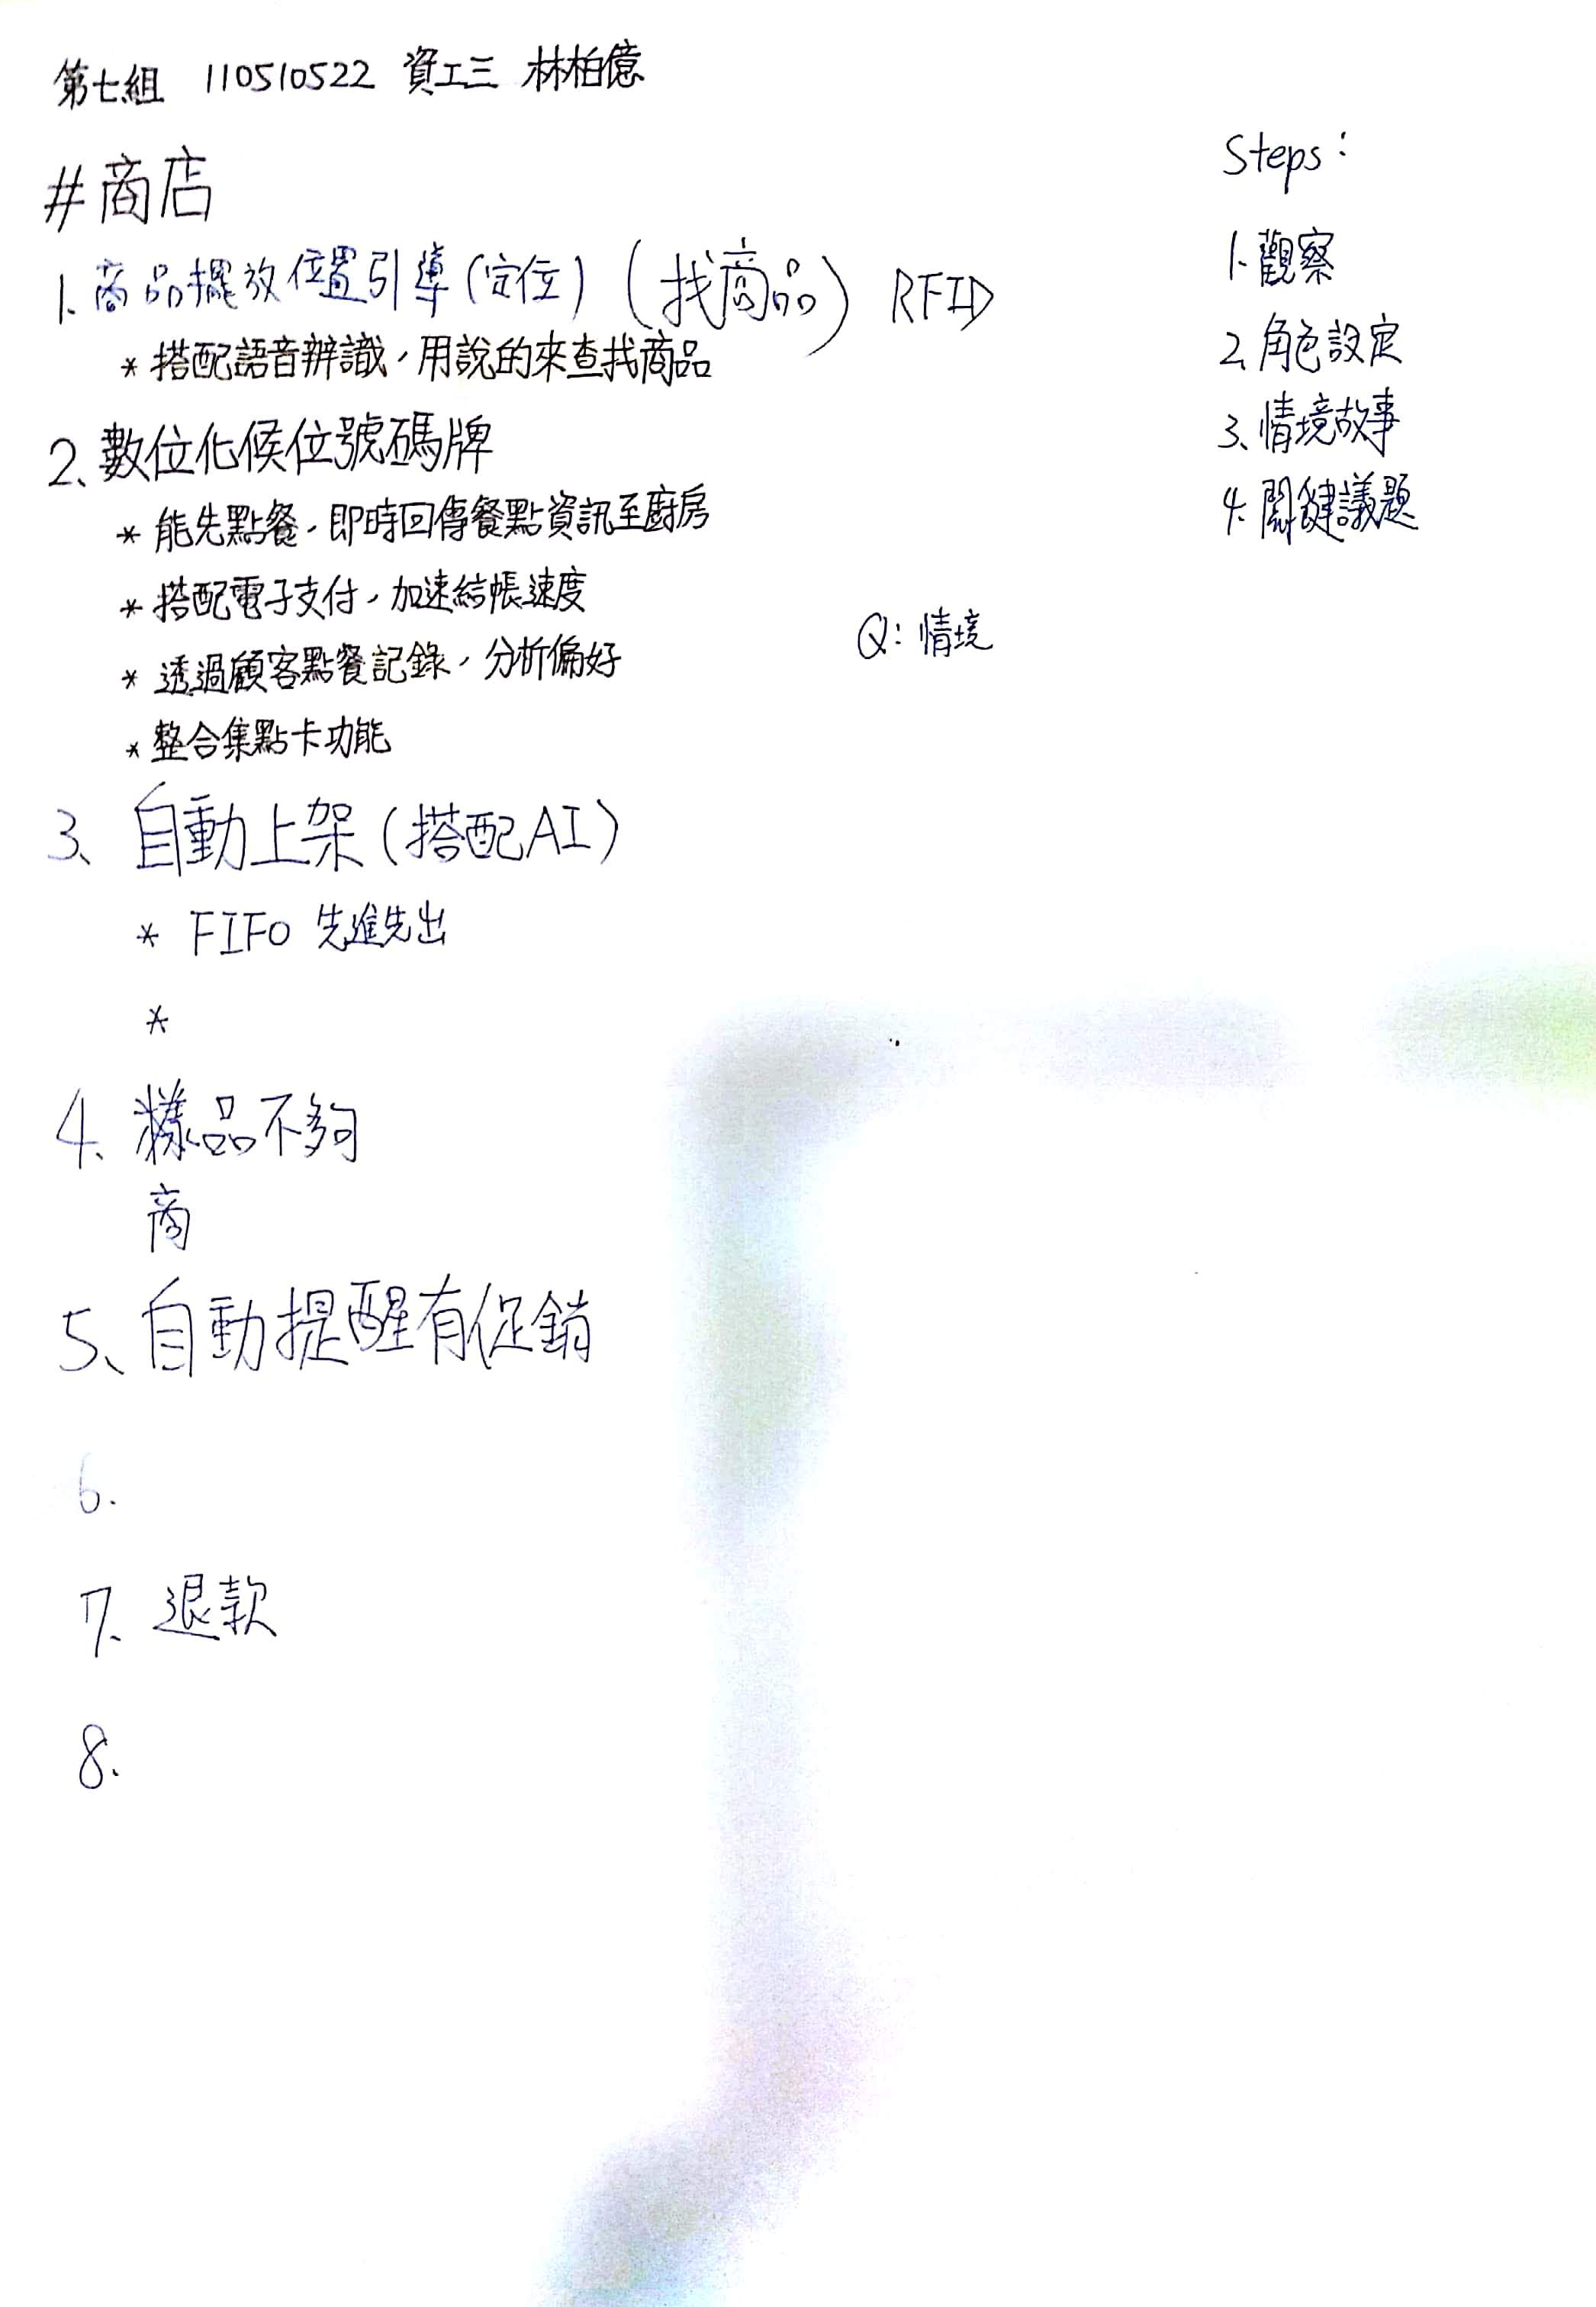 第七組 110510522 資工三 林柏億
#商店
1、商品擺放位置引導(定位) (找商品) RFID
* 搭配語音辨識，用說的來查找商品
2、數位化候位號碼牌
* 能先點餐，即時回傳餐點資訊至廚房
* 搭配電子支付，加速結帳速度
* 透過顧客點餐記錄，分析偏好
* 整合集點卡功能
3、自動上架(搭配AI)
* FIFO 先進先出
*
4、樣品不夠
商
5、自動提醒有促銷
6.
7、退款
8、
Steps：
1、觀察
2、角色設定
3、情境故事
4、關鍵議題
Q：情境